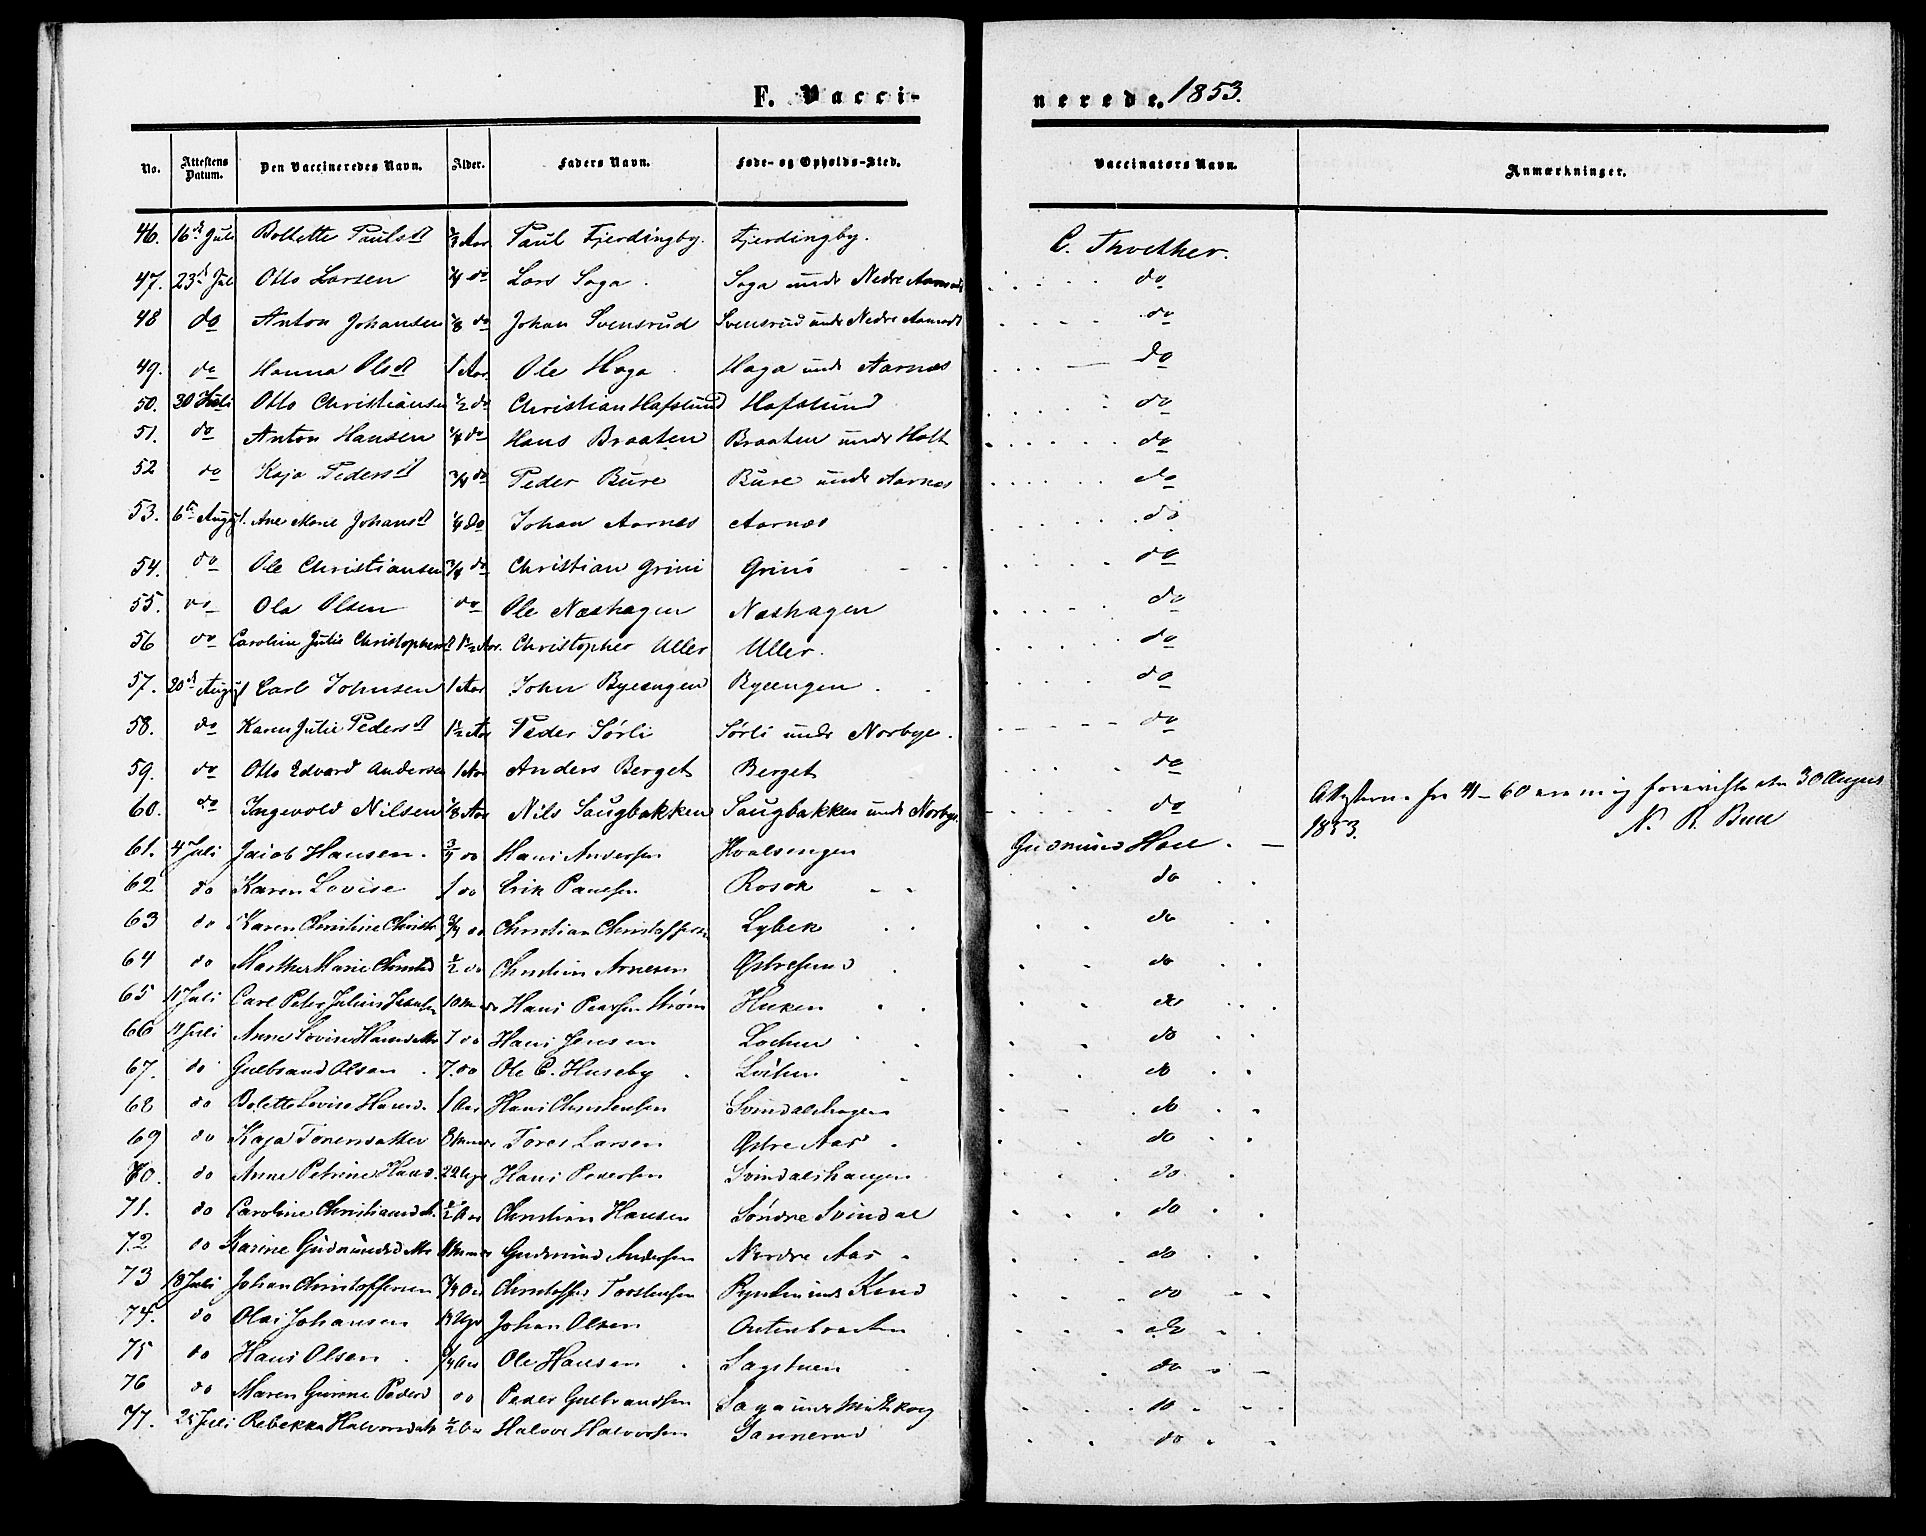 F. Vacci-
nerede. 1853.
No. Attestens Datum. Den Vaccineredes Navn. Alder. Faders Navn. Føde- og Opholds-Sted. Vaccinators Navn. Anmærkninger.
46. 16de Juli Bollette Paulsd Aar Paul Fjerdingby. Fjerdingby. C. Thoether.
47. 23d Juli Otto Larsen do Lars Saga. Saga under Nedre do
48 do Anton Johansen 1/8 do Johan Svensrud Svensrud under Nedre do
49. do Hanna Olsd 1 Aar. Ole Haga Haga under Aarnæs do
50. 30 Juli Otto Christiansen 1/2 do Christian Hafslund Hafslund do
51. do Anton Hansen 1/4 do Hans Braaten Braaten under Holt do
52 do Kaja Pedersd 3/4 do Peder Bure Bure under Aarnæs do
53. 6te August. Ane Marie Johansd 1/4 do Johan Aarnæs Aarnæs do
54. do Ole Christiansen 3/4 do Christian Grini Grini do
55. do Ola Olsen do Ole Næshagen Næshagen do
56 do Caroline Julie Christophersd 1 1/2 Aar. Christopher Uller Uller. do
57. 20de August Carl Johnsen 1 Aar John Byeengen Byeengen do
58. do Karen Julie Pedersd 1 1/2 Aar Peder Sørli Sørli under Norbye. do
59. do Otto Edvard Andersen 1 Aar Anders Berget Berget do
60. do Ingevold Nilsen Aar Nils Saugbakken Saugbakken under Norbye. do Attesterne for 41-60 ere mig foreviste den 30 August
1853. N. R. Bull
61. 4 Juli Jacob Hansen. 3/4 do Hans Andersen Hvalsengen Gudmund Hoel
62 do Karen Lovise 1 do Erik Paulsen do
63 do Karen Christine Christ 3/4 do Christian Christoffersen Lybek do
64 do Marthe Marie Christ 1/2 do Christian Arnesen Østresund do
65 11 Juli Carl Peter Julius 10 Hans Pedersen Strøm do
66 11 Juli Anne Lovise do Hans Jensen do
67. do Gulbrand Olsen do Ole C. Huseby do
68 do Bolette Lovise Hansd. 1 Aar Hans Christensen Svindalshagen do
69 do Kaja Toresdatter 8 Tores Larsen Østre Aas do
70. do Anne Petrine Hansd. 22 Uger Hans Pedersen Svindalshaugen do
71. do Caroline Christiansd. 1/2 Aar Christian Hansen Søndre Svindal do
72 do Karine Gudmundsd Gudmund Andersen Nordre Aas do
73 18 Juli Johan Christoffersen 3/4 Aar Christoffer Torstensen do
74. do Olai Johansen Uger Johan Olsen do
75 do Hans Olsen 1/4 Aar Ole Hansen Sagstuen do
76 do Maren Gurine Pedersd do Peder Gulbrandsen Saga under do
77. 25 Juli Rebekka Halvorsdatt 1/2 Aar Halvor Halvorsen Sannerud do